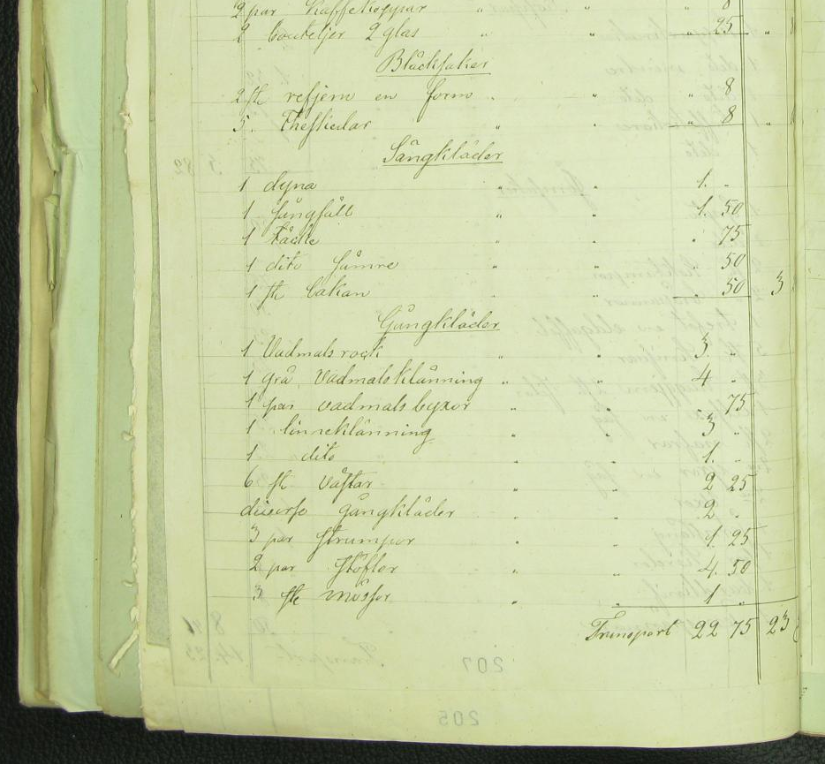 2 par kaffekoppar " " " 8
2 bouteljer 2 glas " " " 25 "
Bläcksaker
2 st refjern en form " " " 8
5 Theskedar " " " 8 "
Sängkläder
1 dyna " " 1. "
1 fångfäll " " 1. 50
1 täcke " " " 75
1 dito sämre " " 50
1 st lakan " " " 50 3
Gångkläder
1 Vadmalsrock " " 3. "
1 grå vadmalsklänning " " 4 "
1 par vadmalsbyxor " " " 75
1 linneklänning " " 3 "
1 dito " " 1. "
6 st västar " " 2 25
diverse gångkläder " " 2. "
3 par strumpor " " 1. 25
2 par stöflor " " 4. 50
3 st mössor " " 1 "
Transport 22 75 23
207
205